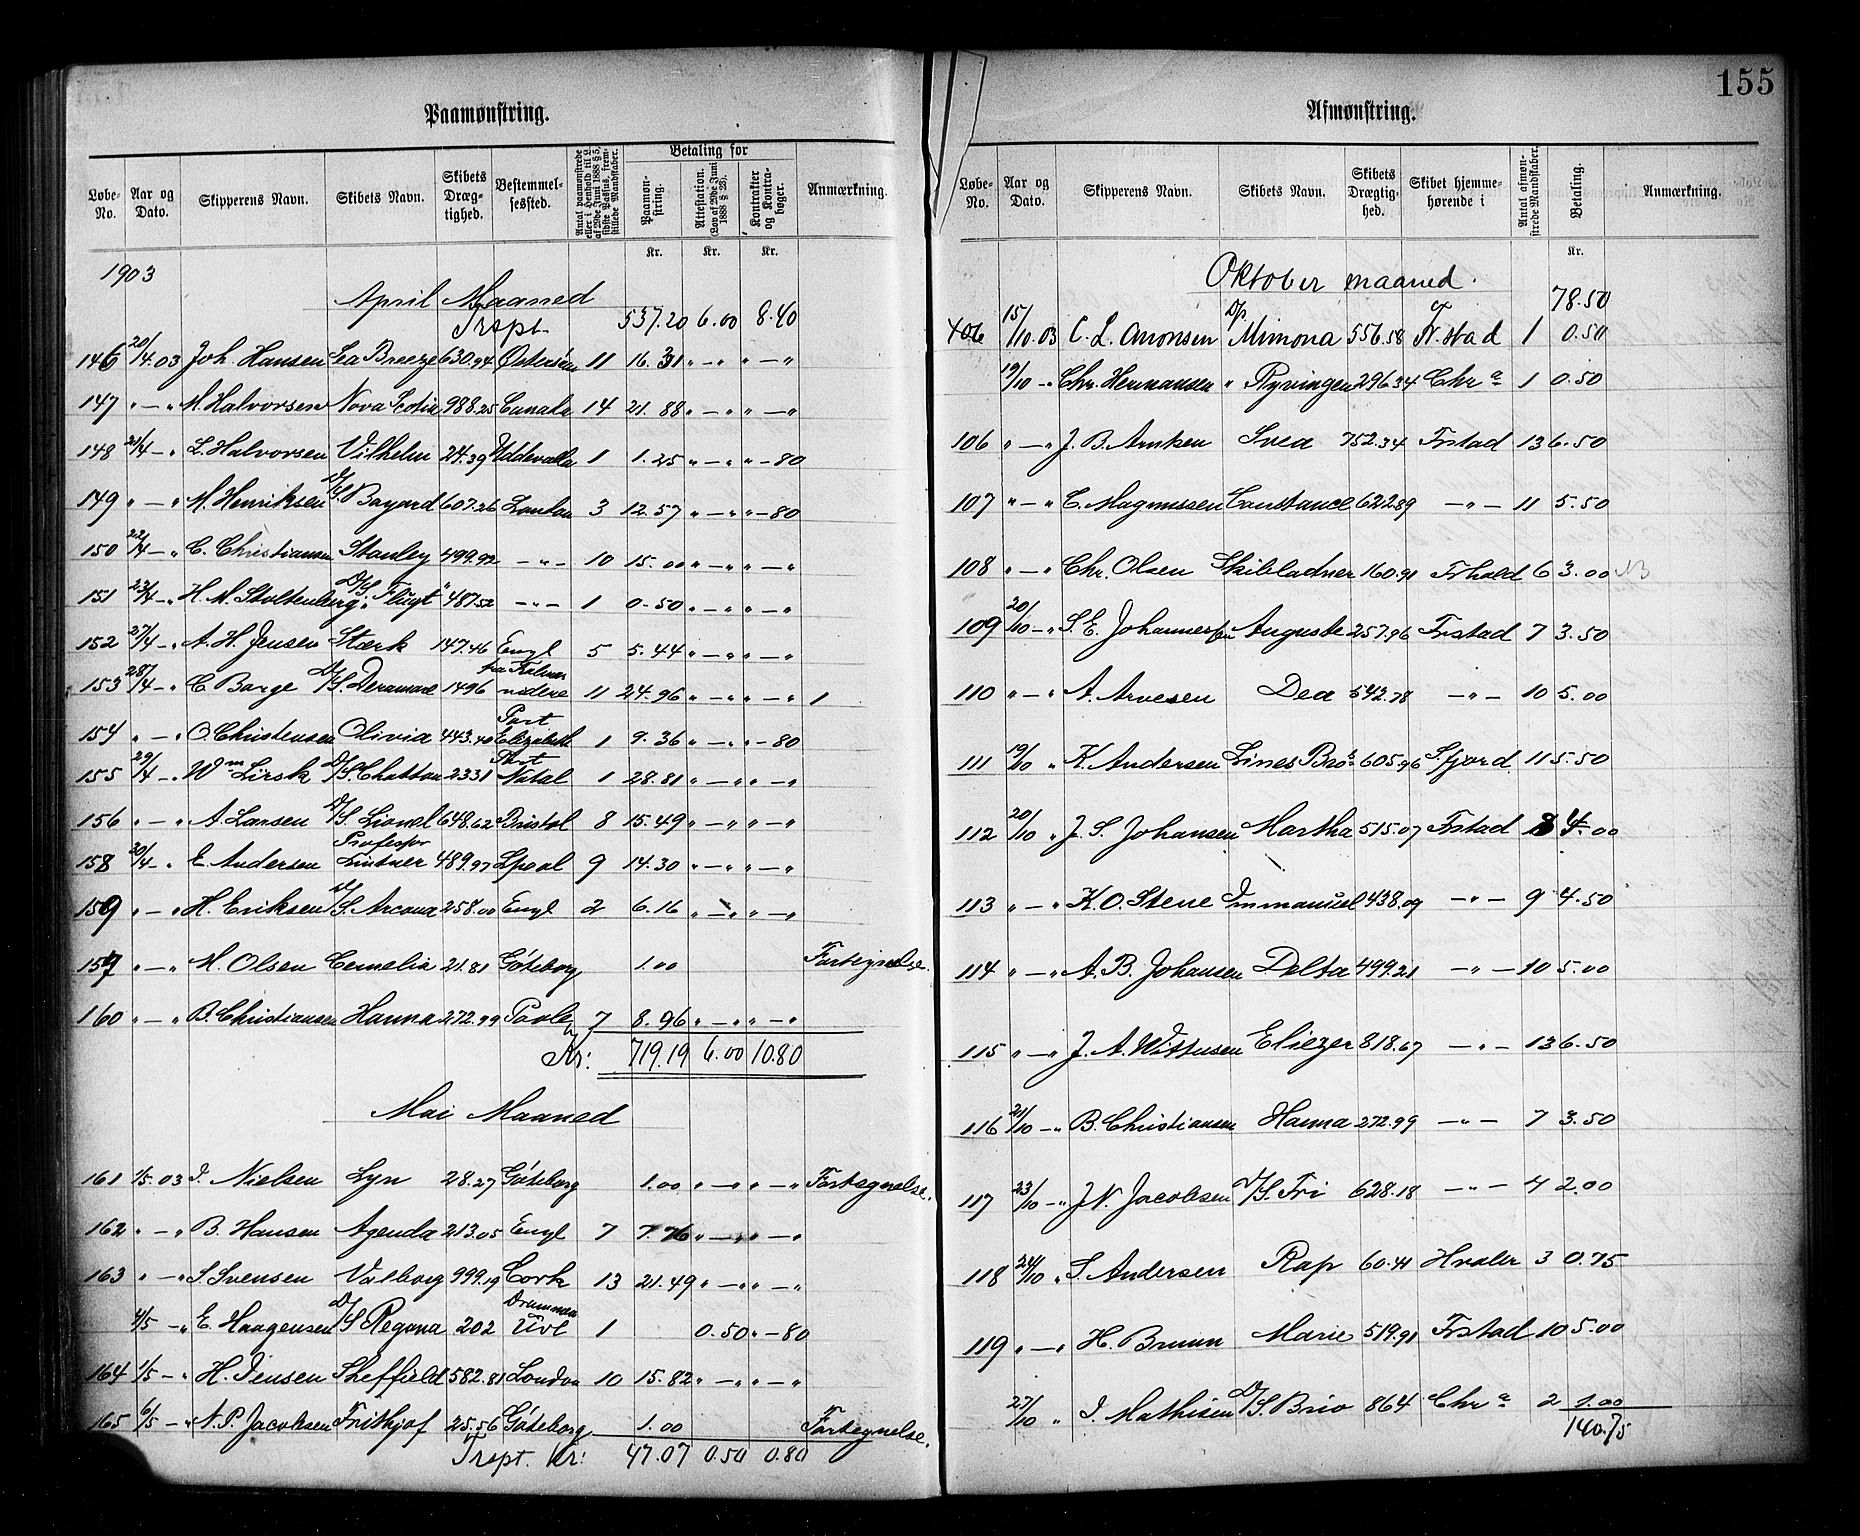 155
Paamønstring.
Løbe-No. Aar og Dato. Skipperens Navn. Skibets Navn. Skibets Dræg-tighed. Bestemmel-sessted. Antal paamønstrede eller i Henhold til L. af 29de Juni 1888 § 5, sidste Passus, frem-stillede Mandskaber. Betaling for Paamøn-string. Attestation. (Lov af 29de Juni 1888 § 23). Kontrakter og Kontra-bøger. Anmærkning.
Kr. Kr. Kr.
1903
April Maaned
Trspt. 537.20 6.00 8.40
146 20/4.03 Joh. Hansen Sea Breeze 630.94 Østersøen 11 16.31 " — " " — "
147 " — " M. Halvorsen Nova Scotia 988.25 Canada 14 21.88 " — " " — "
148 21/4 — " L. Halvorsen Vilhelm 24.39 Uddevalla 1 1.25 " — " " — 80
149 " — " M. Henriksen D/S. Bayard 607.26 London 3 12.57 " — " " — 80
150 22/4 — " C. Christiansen Stanley 499.92 — " — 10 15.00 " — " " — "
151 23/4 — " H. M. Stoltenberg D/S. "Flügt" 487.52 — " — 1 0.50 " — " " — "
152 27/4 — " A. H. Jensen Stærk 147.46 Engl 5 5.44 " — " " — "
153 28/4 — " C. Barge D/S. Deramore 1496 fra ndere 11 24.96 " — " " — " 1
154 " — " O. Christensen Olivia 443.40 Port Elizabeth 1 9.36 " — " " — 80
155 29/4 — " Wm Lirsk D/S. Chatton 2331 Port Natal 1 28.81 " — " " — "
156 " — " A. Larsen D/S. Lionel 648.62 Bristol 8 15.49 " — " " — "
158 30/4 — " E. Andersen Professor Lintner 489.97 Lpool 9 14.30 " — " " — "
159 " — " H. Eriksen D/S. Arcona 258.00 Engl 2 6.16 " — " " — "
157 " — " M. Olsen Cemelia 21.81 Göteborg 1.00 Fortegnelse.
160 " — " B. Christiansen Hanna 272.99 Poole 7 8.96 " — " " — "
Kr: 719.19 6.00 10.80
Mai Maaned
161 1/5.03 I. Nielsen Lyn 28.27 Göteborg 1.00 " — " " — " Fortegnelse.
162 " — " B. Hansen Agenda 213.05 Engl 7 7.76 " — " " — "
163 " — " S. Svensen Valborg 999.19 Cork 13 21.49 " — " " — "
4/5 — " E. Haagensen D/S. Regona 202 Drammen 1 0.50 " — 80
164 1/5 — " H. Jensen Sheffield 582.81 London 10 15.82 " — " " — "
165 6/5 — " N. P. Jacobsen Frithjof 25.56 Göteborg 1.00 Fortegnelse.
Trspt. Kr: 47.07 0.50 0.80
Afmønstring.
Løbe-No. Aar og Dato. Skipperens Navn. Skibets Navn. Skibets Drægtig-hed. Skibet hjemme-hørende i Antal afmøn-strede Mandskaber. Betaling. Anmærkning.
Kr.
Oktober maaned.
78.50
106 15/10.03 C. L. Aronsen Dp Mimona 556.58 Fr.stad 1 0.50
19/10 — " Chr. Hermansen " Ryvingen 296.34 Chr a 1 0.50
106 " — " J. B. Arntsen Svea 752.34 Frstad 13 6.50
107 " — " C. Magnussen Constance 622.89 — " — 11 5.50
108 " — " Chr. Olsen Skibladner 160.91 Frhald 6 3.00 NB
109 20/10 — " S. E. Johannesen Auguste 257.96 Frstad 7 3.50
110 " — " A. Arvesen Dea 542.78 — " — 10 5.00
111 19/10 " K. Andersen Lines Bro 605.96 S.fjord 11 5.50
112 20/10 " J. S. Johansen Martha 515.07 Frstad 8 4.00
113 " — " K. O. Stene Immanuel 438.09 — " — 9 4.50
114 " — " A. B. Johansen Delta 499.21 — " — 10 5.00
115 " — " J. A. Wittusen Eliezer 818.67 — " — 13 6.50
116 21/10 — " B. Christiansen Hanna 272.99 — " — 7 3.50
117 23/10 — " J. N. Jacobsen D/S. Fri 628.18 — " — 4 2.00
118 24/10 " S. Andersen Rap 60.41 Hvaler 3 0.75
119 " — " H. Bruun Marie 519.91 Frstad 10 5.00
27/10 " I. Mathisen D/S. Brio 864 Chr a 2 1.00
140.75